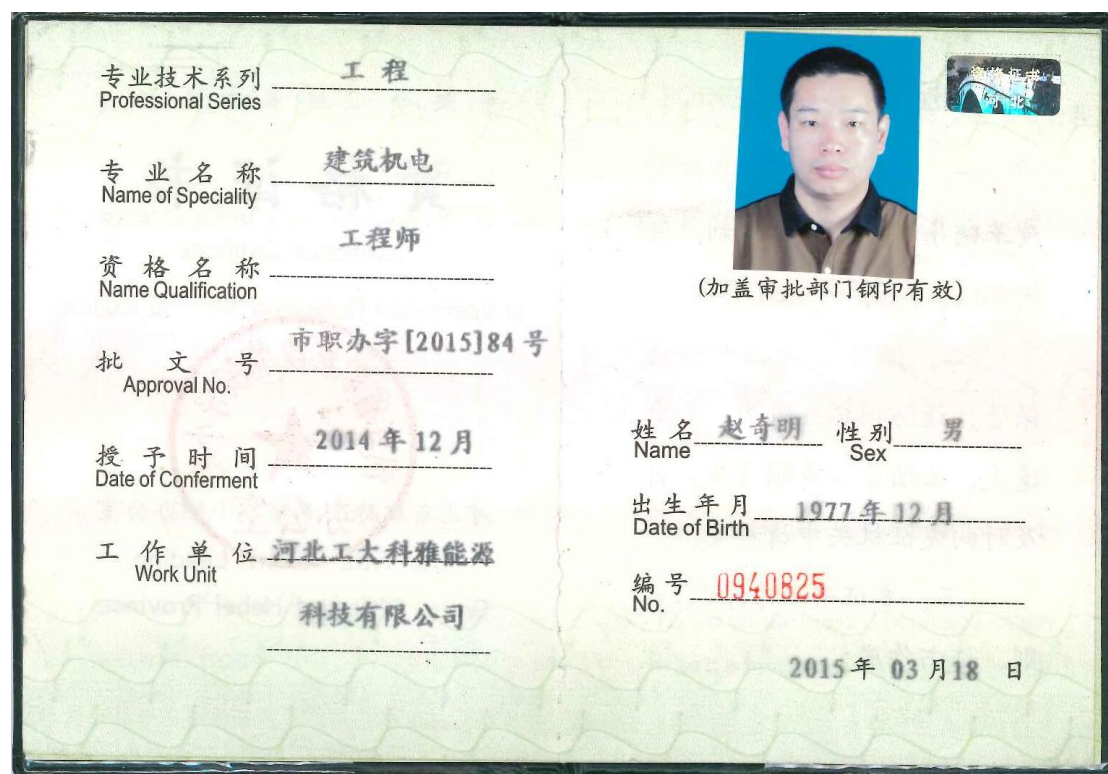 专业技术系列 工 程
Professional Series
专 业 名 称 建筑机电
Name of Speciality
资 格 名 称 工程师
Name Qualification
批 文 号 市职办字[2015]84 号
Approval No.
授 予 时 间 2014 年 12 月
Date of Conferment
工 作 单 位 河北工大科雅能源
Work Unit
科技有限公司
资格证书
河北
(加盖审批部门钢印有效)
姓 名 赵奇明 性 别 男
Name Sex
出 生 年 月 1977 年 12 月
Date of Birth
编 号 0940825
No.
2015 年 03 月 18 日